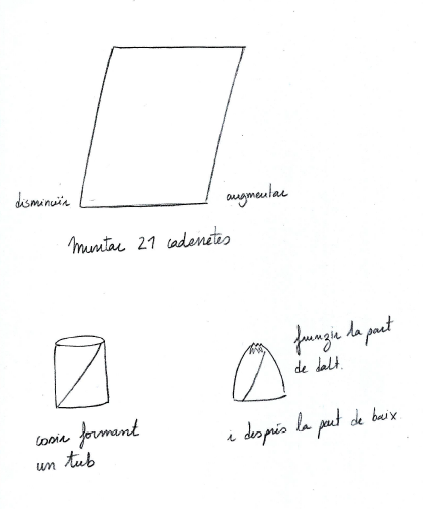 disminuir
augmentar
Muntar 21 cadenetes
frunzir la part
de dalt.
cosir formant
un tub
i després la part de baix.